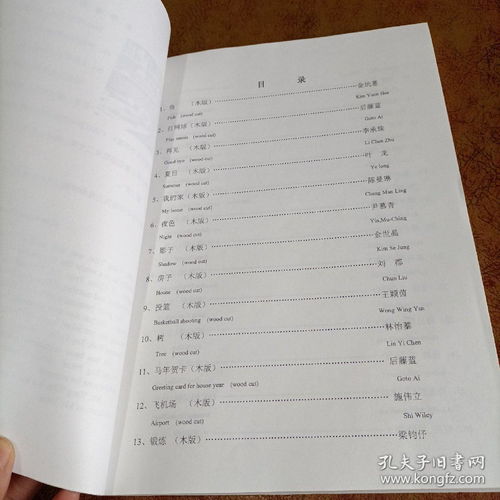 目 录
1、鱼 (木版)……金比喜
Fish (wood cut) Kim Yuen Hee
2、打网球(木版)……后藤蓝
Play tennis (wood cut) Goto Ai
3、再见 (木版)……李承珠
Good-bye (wood cut) Li Chen Zhu
4、夏日 (木版)……叶 龙
Summer (wood cut) Ye long
5、我的家(木版)……陈曼琳
My home (wood cut) Chang Man Ling
6、夜色 (木版)……尹慕青
Night (wood cut) Yin,Mu-Ching
7、影子 (木版)……金世晶
Shadow (wood cut) Kim Se Jung
8、房子 (木版)……刘 郡
House (wood cut) Chun Liu
9、投篮 (木版)……王颖茵
Basketball shooting (wood cut) Wong Wing Yan
10、树 (木版)……林怡蓁
Tree (wood cut) Lin Yi Chen
11、马年贺卡(木版)……后藤蓝
Greeting card for house year (wood cut) Goto Ai
12、飞机场 (木版)……施伟立
Airport (wood cut) Shi Wiley
13、锻炼 (木版)……梁钧仔
孔夫子旧书网
www.kongfz.com